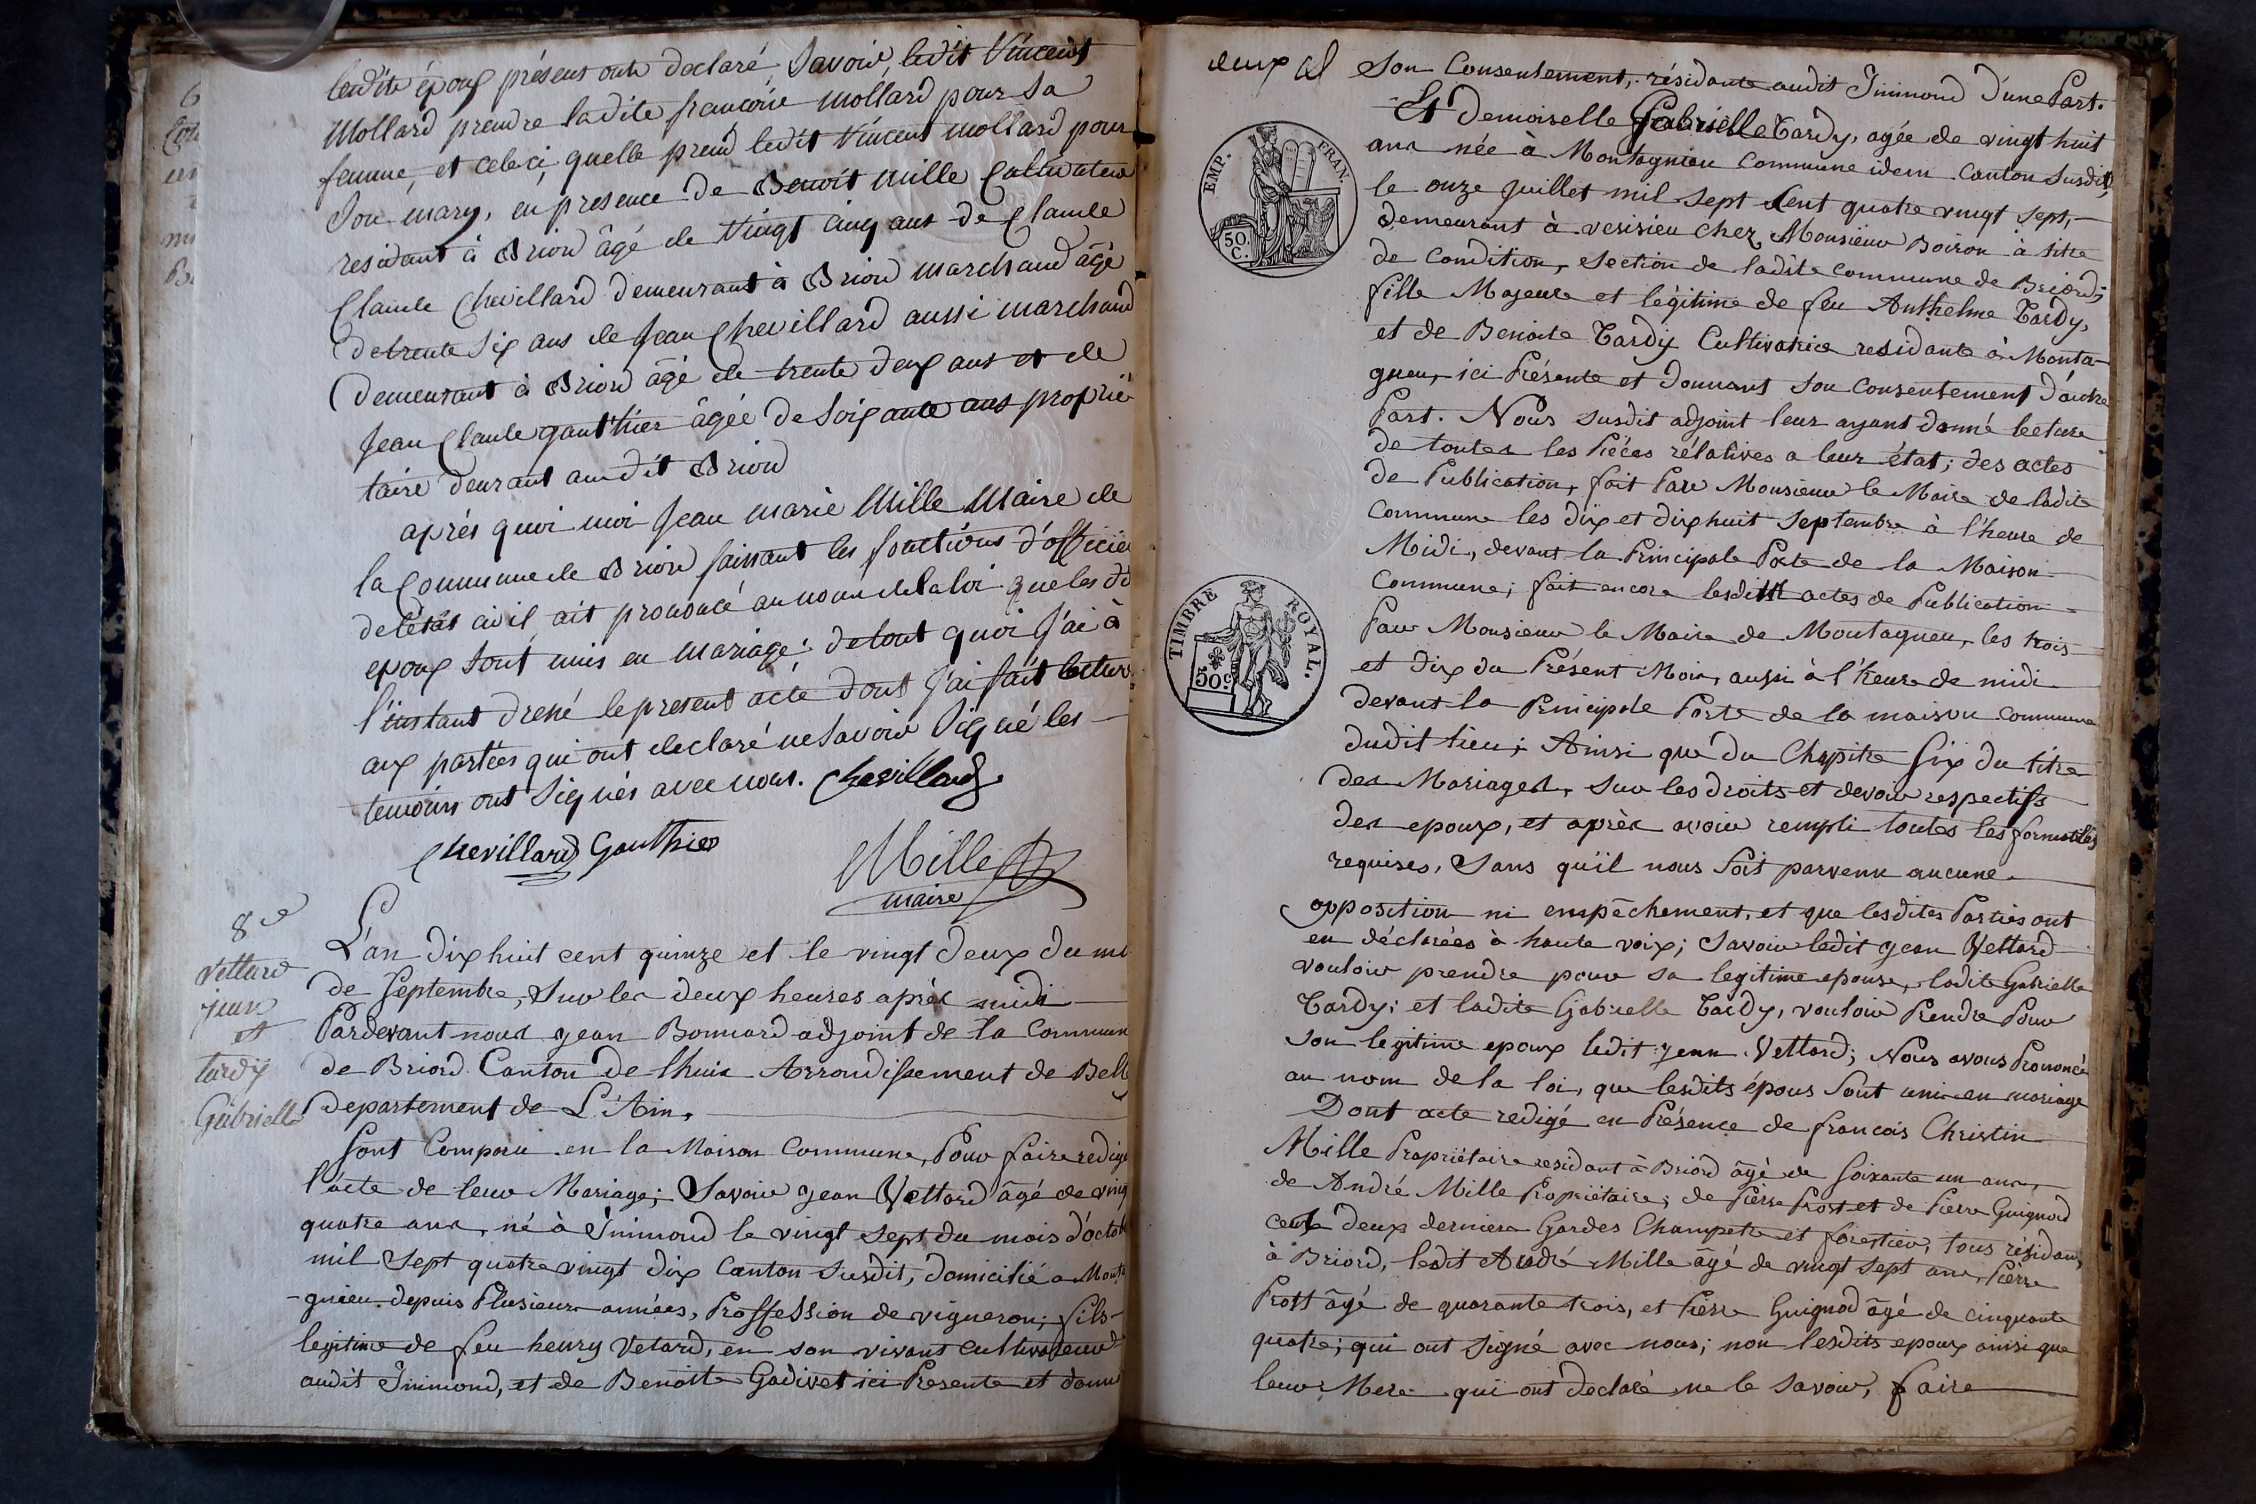 lesdite époux présens ont declaré, Savoir ledit Vincent
Mollard prendre ladite francoise mollard pour sa
femme, et celeci, quelle prend ledit Vincent mollard pour
Son mary, en presence de Benoit Mille Cultivateur
residant à Briord âgé de Vingt cinq ans de Claude
Claude Chevillard demeurant à Briord marchand âgé
detrente six ans de Jean Chevillard aussi marchand
demeurant à Briord âgé de trente deux ans et de
Jean Claude gauthier âgée de Soixante ans proprié
taire deurant audit Briord
après quoi moi Jean marie Mille Maire de
la Commune de Briord faissant les fonctions d'officier
de l'état civil ait prononcé au nom de la loi que les dit
epoux sont unis en mariage: de tout quoi J'ai à
l'instant dressé le present acte dont J'ai fait lecture
aux parties qui ont declaré ne Savoir Signé les
temoins ont Signés avec nous. Chevillard
Chevillard Gauthier
Mille
maire
8e
Vettard
jean
et
tardy
Gabrielle
L'an dix huit cent quinze et le vingt deux du mo
de Septembre, Sur les deux heures après midi
Pardevant nous jean Bonnard adjoint de la Commun
de Briord Canton de lhuis Arrondissement de Bell
departement de L'Ain,
Sont Comparu en la Maison Commune, Pour faire redig
l'acte de leur Mariage; Savoir jean Vettard âgé de ving
quatre ans, né à Inimond le vingt sept du mois d'octob
mil Sept quatre vingt dix Canton Susdit, domicilié a Monta
-gnieu depuis Plusieurs années, Proffession de vigneron; fils
legitime de feu henry Vetard, en son vivant cultivateur
audit Inimond, et de Benoitte Godivet ici Presente et donn
deux
Son Consentement, résidante audit Inimond d'une Part.
Et Demoiselle Gabrielle Tardy, agée de vingt huit
ans née à Montagnieu Commune idem Canton Susdit,
le onze Juillet mil Sept Cent quatre vingt Sept,
demeurant à verisieu chez Monsieur Boiron à titre
de Condition, Section de ladite Commune de Briord;
fille Majeure et légitime de feu Anthelme Tardy,
et de Benoite Tardy Cultivatrice residante à Monta-
gneu, ici Présente et donnant Son Consentement d'autre
Part. Nous susdit adjoint leur ayant donné lecture
de toutes les Piéces rélatives a leur état; des actes
de Publication, fait Par Monsieur le Maire de ladite
Commune les dix et dix huit Septembre à l'heure de
Midi, devant la Principale Porte de la Maison
Commune; fait encore lesdits actes de Publication
Par Monsieur le Maire de Montagneu, les trois
et dix du Présent Mois, aussi à l'heure de midi
devant la Principale Porte de la maison Commune
dudit lieu; Ainsi que du Chapitre Six du titre
des Mariages, Sur les droits et devoir respectifs
des epoux, et après avoir rempli toutes les formalités
requises, Sans qu'il nous Soit parvenu aucune
opposition ni empêchement, et que lesdites Parties ont
en déclarées à haute voix; Savoir ledit jean Vettard
vouloir prendre pour sa legitime epouse, ladite Gabrielle
Tardy; et ladite Gabrielle Tardy, vouloir Prendre Pour
Son legitime epoux ledit jean Vettard; Nous avons Prononcé
au nom de la loi, que lesdits épous Sont uni en mariage
Dont acte redigé en Présence de francois Christin
Mille Propriétaire residant à Briord âgé de Soixante un ans,
de André Mille Propriétaire; de Pierre Prost et de Pierre Guignod
deux derniers Gardes Champetre et forestier, tous résidans
à Briord, ledit André Mille âgé de vingt Sept ans, Pierre
Prost âgé de quarante trois, et Pierre Guignod âgé de cinquante
quatre; qui ont Signé avec nous; non lesdits epoux ainsi que
leur Mere qui ont declaré ne le Savoir, faire
EMP. FRAN.
50.
C.
TIMBRE ROYAL.
50c